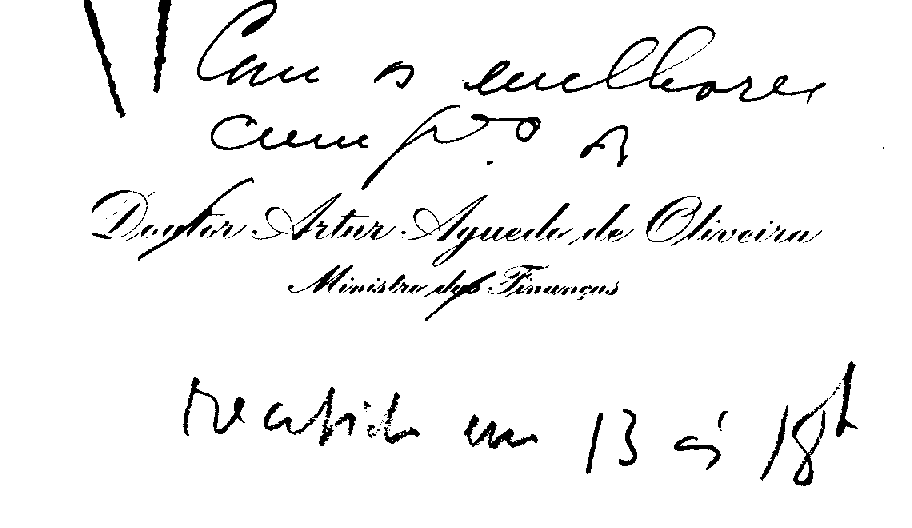 Com os melhores
cump.os de
Doutor Artur Aguedo de Oliveira
Ministro das Finanças
recebido em 13 às 18h